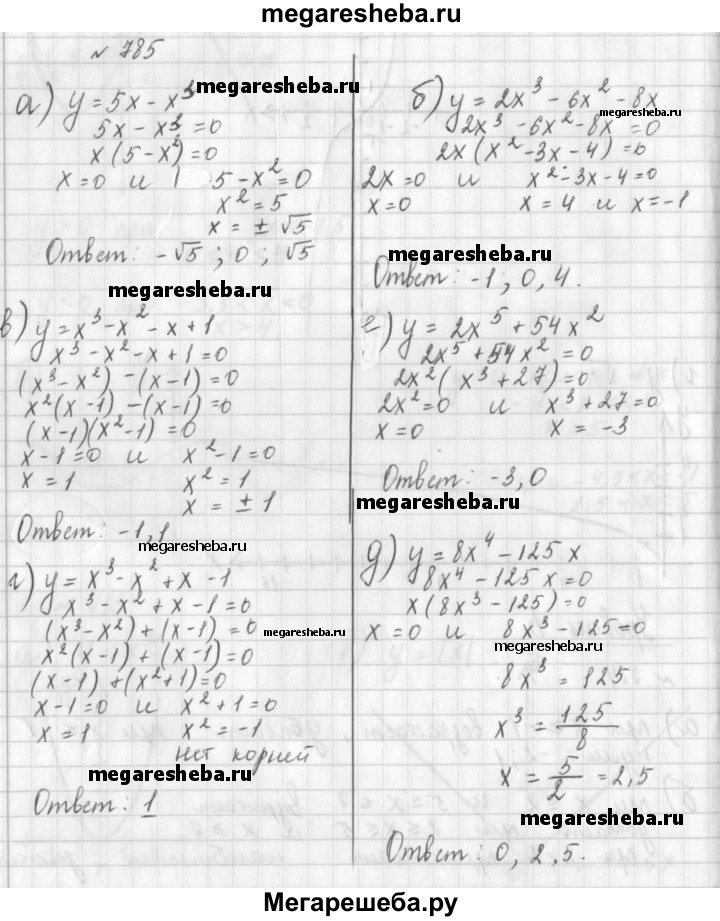 megaresheba.ru
№ 785
а) y = 5x - x³
megaresheba.ru
5x - x³ = 0
x(5 - x²) = 0
x = 0 и 5 - x² = 0
x² = 5
x = ± √5
Ответ: -√5 ; 0 ; √5
megaresheba.ru
б) y = 2x³ - 6x² - 8x
megaresheba.ru
2x³ - 6x² - 8x = 0
2x(x² - 3x - 4) = 0
2x = 0 и x² - 3x - 4 = 0
x = 0 x = 4 и x = -1
megaresheba.ru
Ответ: -1 ; 0, 4.
в) y = x³ - x² - x + 1
x³ - x² - x + 1 = 0
(x³ - x²) - (x - 1) = 0
x²(x - 1) - (x - 1) = 0
(x - 1)(x² - 1) = 0
x - 1 = 0 и x² - 1 = 0
x = 1 x² = 1
x = ± 1
Ответ: -1, 1
megaresheba.ru
е) y = 2x⁵ + 54x²
2x⁵ + 54x² = 0
2x²(x³ + 27) = 0
2x² = 0 и x³ + 27 = 0
x = 0 x = -3
Ответ: -3, 0
megaresheba.ru
г) y = x³ - x² + x - 1
x³ - x² + x - 1 = 0
(x³ - x²) + (x - 1) = 0
megaresheba.ru
x²(x - 1) + (x - 1) = 0
(x - 1) + (x² + 1) = 0
x - 1 = 0 и x² + 1 = 0
x = 1 x² = -1
Нет корней
megaresheba.ru
Ответ: 1
д) y = 8x⁴ - 125x
8x⁴ - 125x = 0
x(8x³ - 125) = 0
x = 0 и 8x³ - 125 = 0
megaresheba.ru
8x³ = 125
x³ = 125/8
x = 5/2 = 2,5
megaresheba.ru
Ответ: 0, 2,5.
Мегарешеба.ру